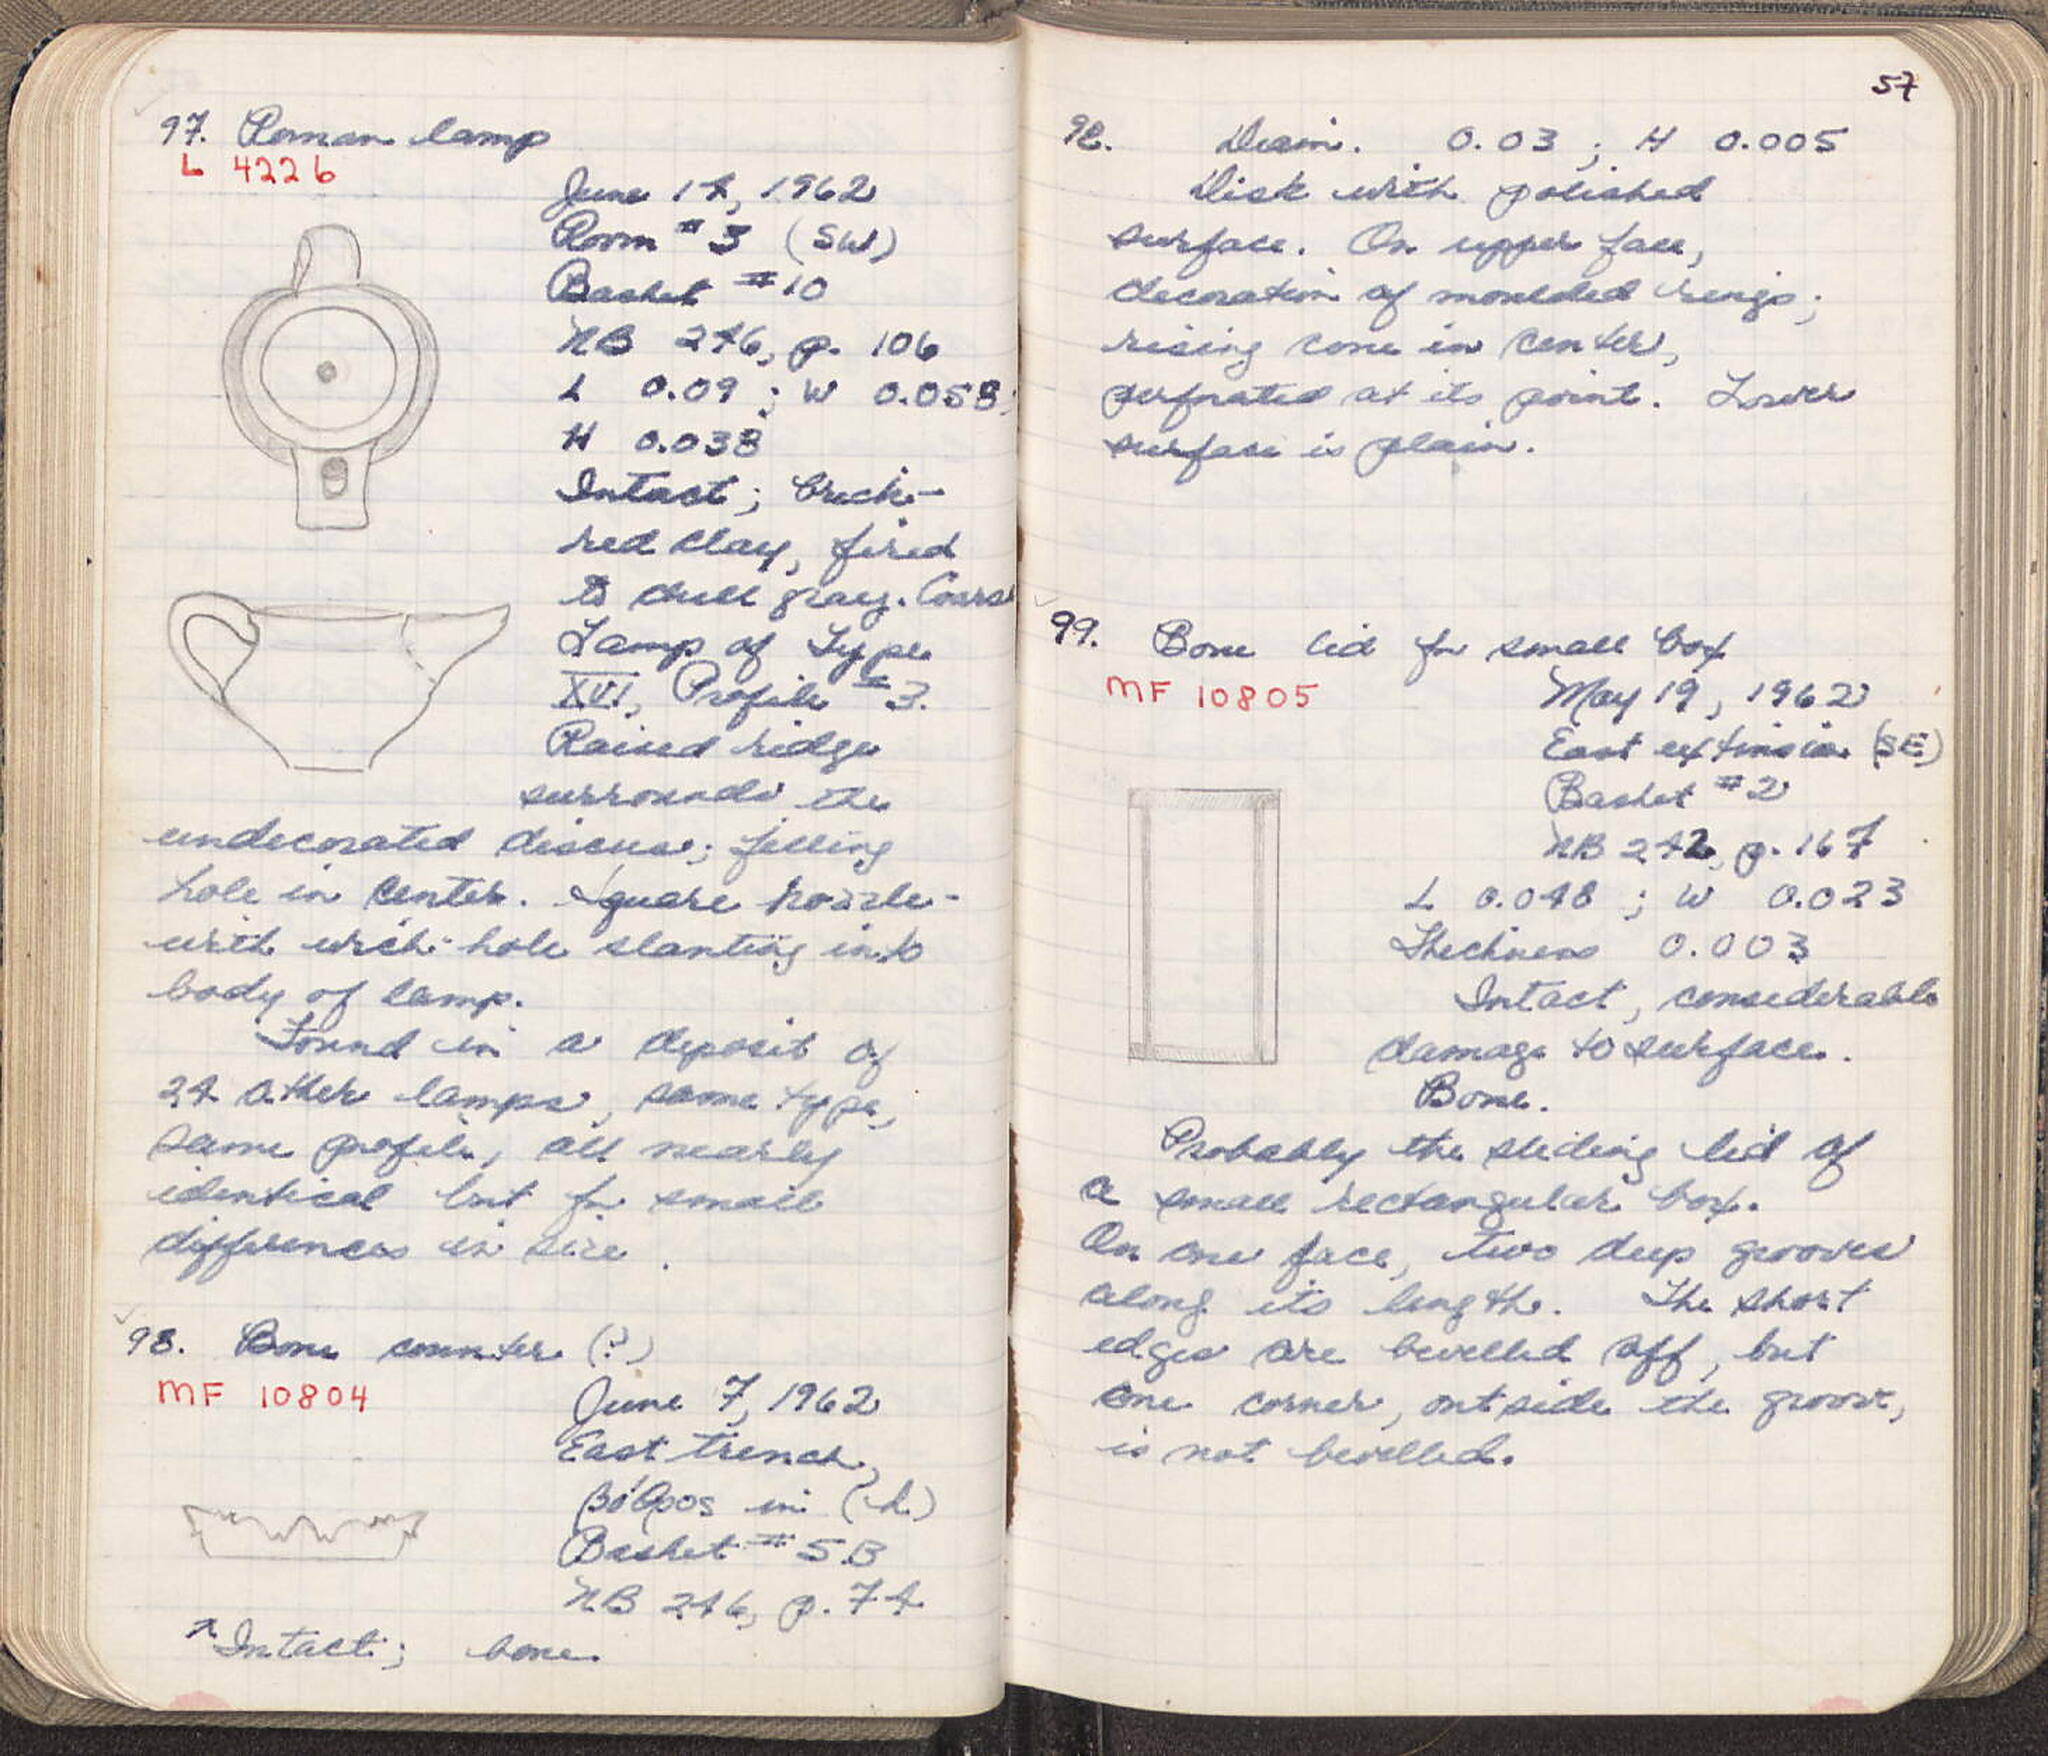 97. Roman lamp
L 4226
June 14, 1962
Room #3 (SW)
Basket #10
NB 246, p. 106
L 0.09 ; W 0.058;
H 0.038
Intact; brick-
red clay, fired
to dull gray. Coarse
Lamp of Type
XVI, Profile #3.
Raised ridge
surrounds the
undecorated discus; filling
hole in center. Square nozzle-
with wick-hole slanting into
body of lamp.
Found in a deposit of
24 other lamps, same type,
same profile, all nearly
identical but for small
differences in size.
98. Bone counter (?)
MF 10804
June 7, 1962
East trench,
βόθρος in (h)
Basket #5B
NB 246, p. 74
Intact; bone.
57
98. Diam. 0.03 ; H 0.005
Disk with polished
surface. On upper face,
decoration of moulded rings;
rising cone in center,
perforated at its point. Lower
surface is plain.
99. Bone lid for small box
MF 10805
May 19, 1962
East extension (SE)
Basket #2
NB 242, p. 167
L 0.048 ; W 0.023
Thickness 0.003
Intact, considerable
damage to surface.
Bone.
Probably the sliding lid of
a small rectangular box.
On one face, two deep grooves
along its length. The short
edges are bevelled off, but
one corner, outside the groove,
is not bevelled.